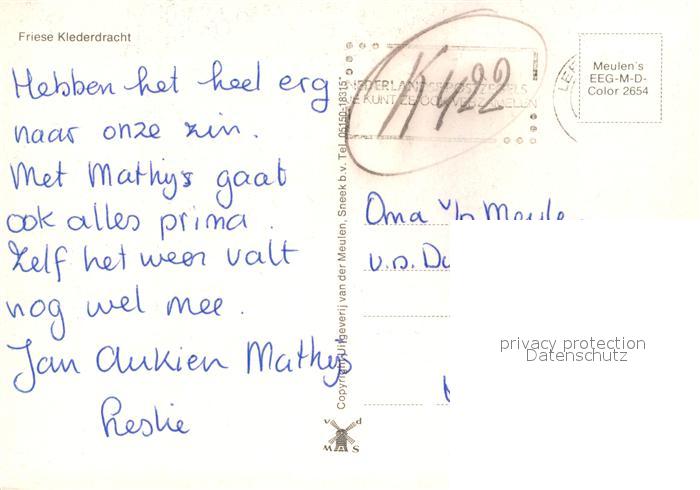 Friese Klederdracht
Hebben het heel erg
naar onze zin.
Met Mathijs gaat
ook alles prima.
Zelf het weer valt
nog wel mee.
Jan Aukien Mathijs
Leslie
Copyright Uitgeverij van der Meulen, Sneek b.v. Tel. 05150-18315*
K422
NEDERLANDSE POSTZEGELS
JE KUNT ZE OOK VERZAMELEN
LEE
Meulen's
EEG-M-D-
Color 2654
Oma v/d Meule
v.d. Du
privacy protection
Datenschutz